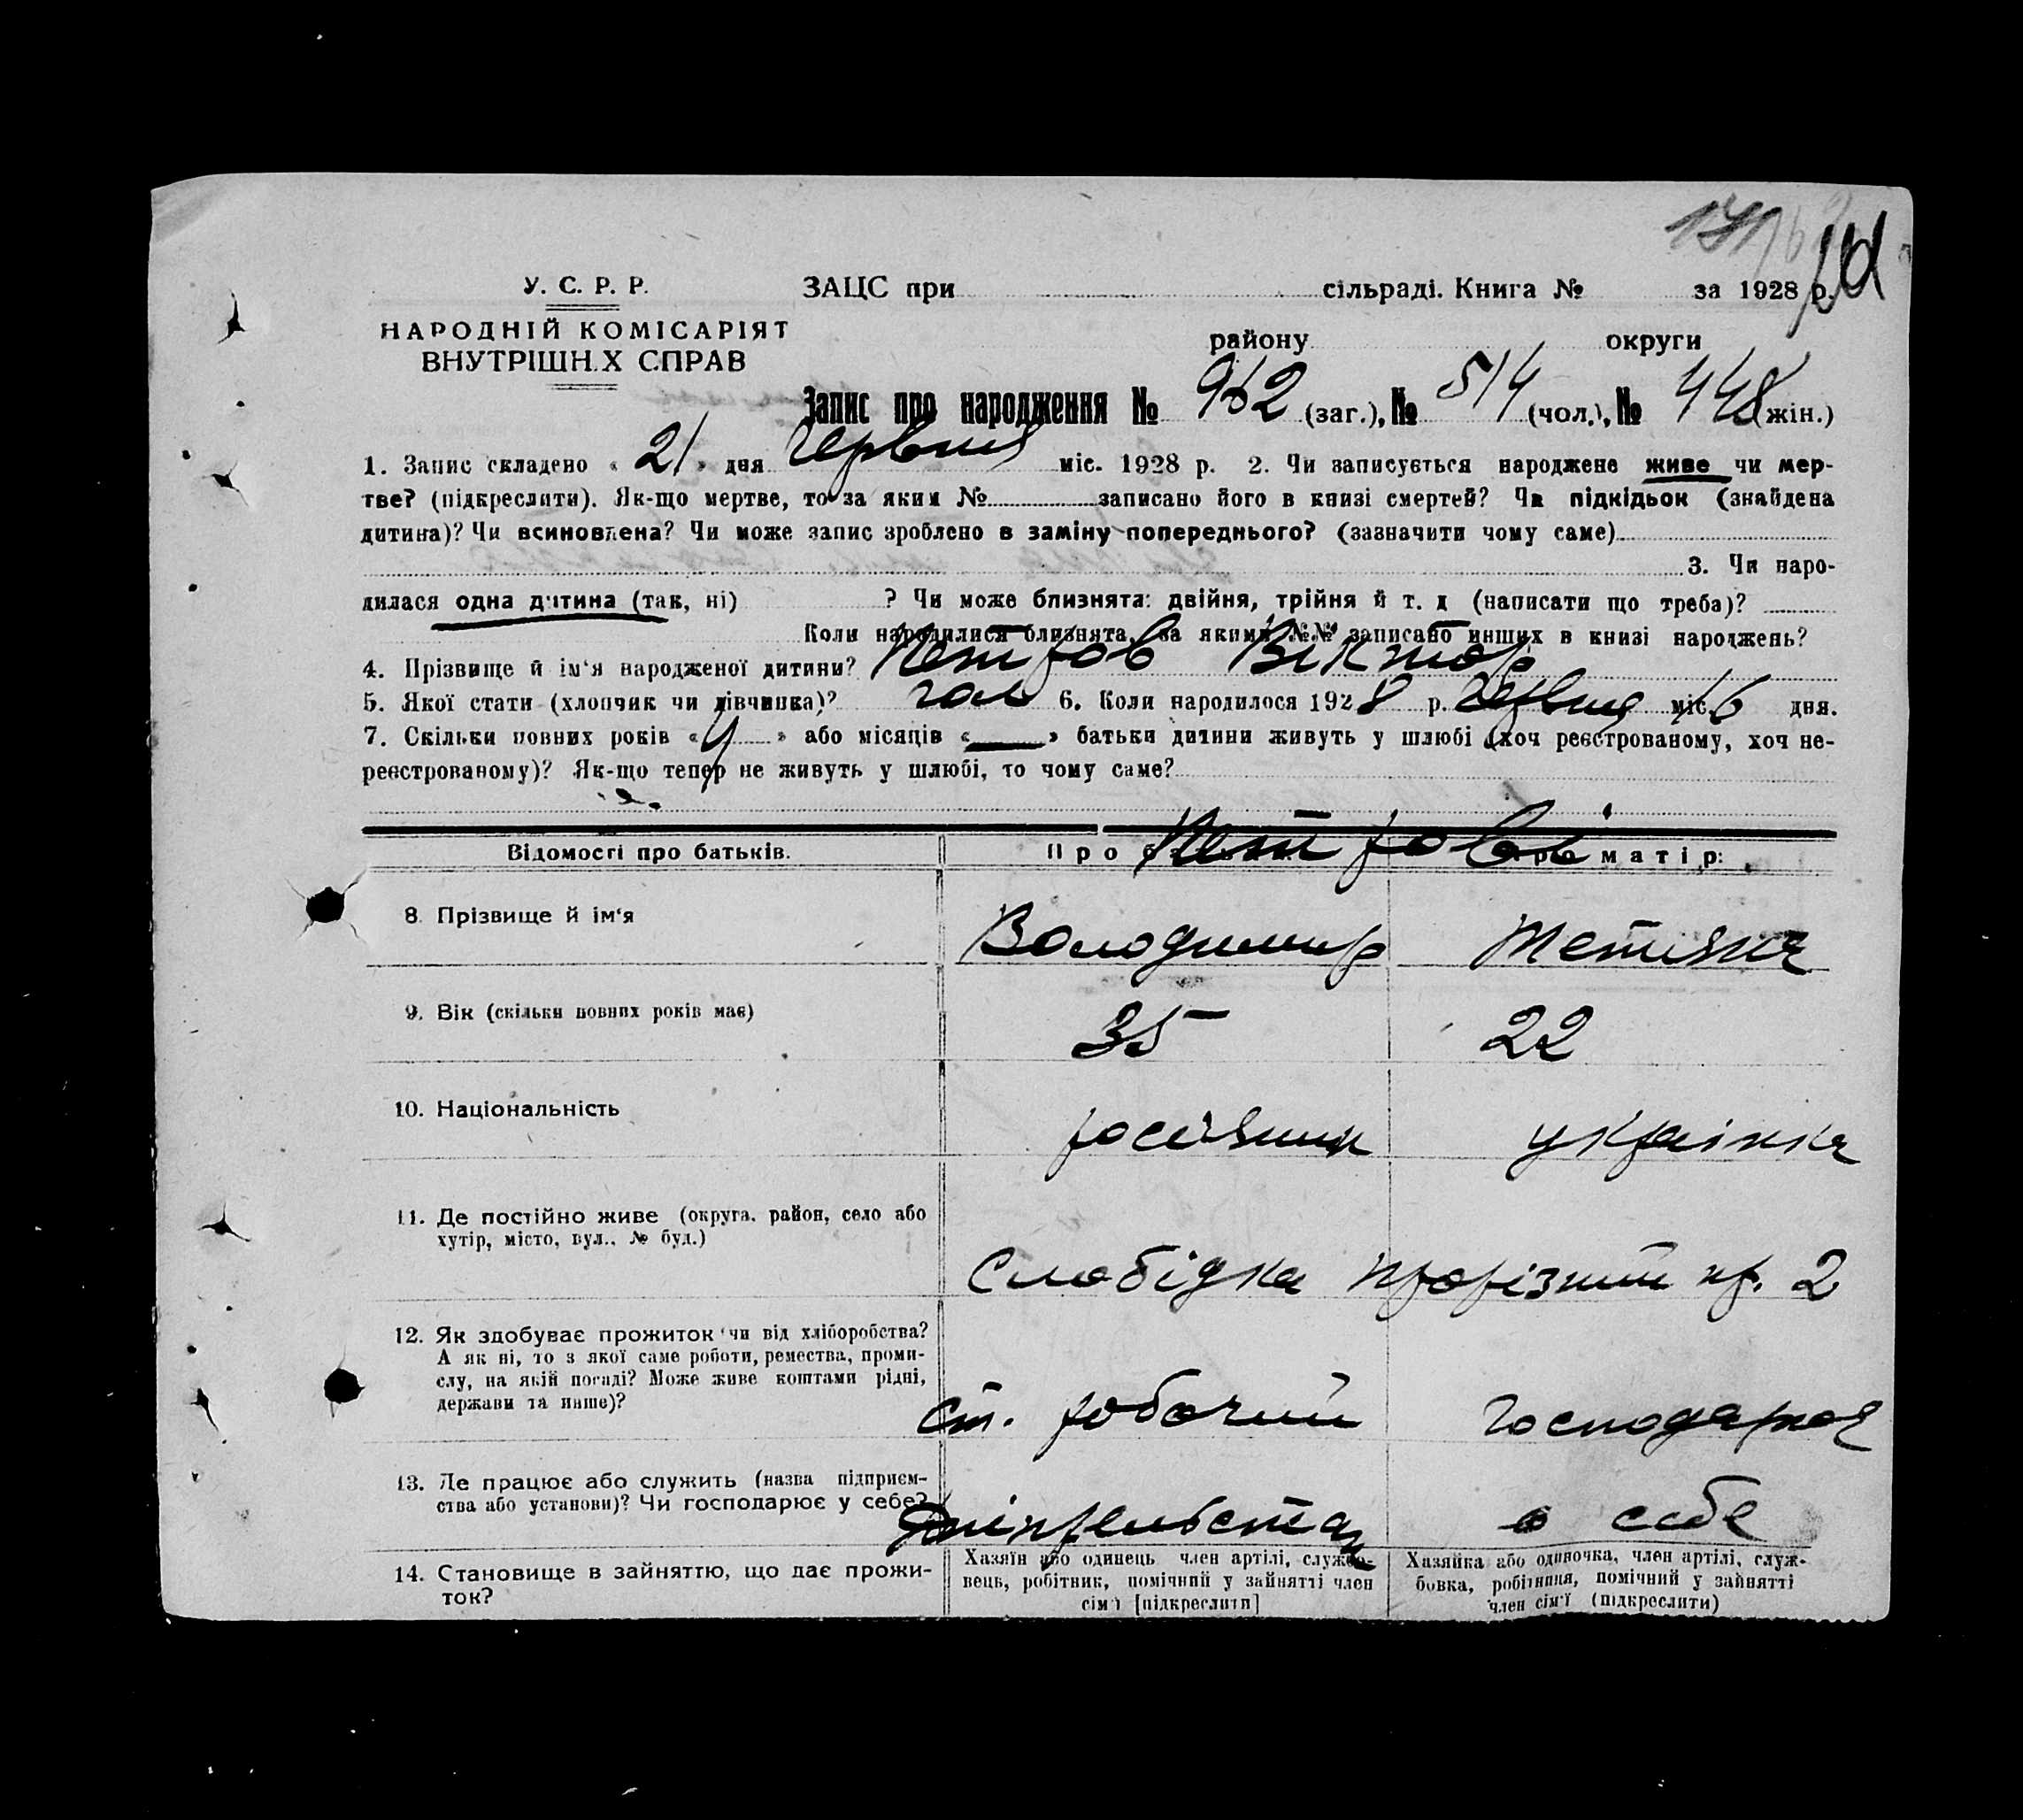 У. С. Р. Р.
НАРОДНІЙ КОМІСАРІЯТ
ВНУТРІШН.Х СПРАВ
ЗАЦС при сільраді. Книга № за 1928 р.
району округи
Запис про народження № 962 (заг.), № 514 (чол.), № 448 (жін.)
1. Запис складено « 21 » дня червня міс. 1928 р. 2. Чи записується народжене живе чи мер-
тве? (підкреслити). Як-що мертве, то за яким № записано його в книзі смертей? Чи підкідьок (знайдена
дитина)? Чи всиновлена? Чи може запис зроблено в заміну попереднього? (зазначити чому саме)
3. Чи наро-
дилася одна дитина (так, ні) ? Чи може близнята: двійня, трійня й т. д (написати що треба)?
Коли народилися близнята, за якими №№ записано инших в книзі народжень?
4. Прізвище й ім‘я народженої дитини? Петров Віктор
5. Якої стати (хлопчик чи дівчинка)? чол 6. Коли народилося 1928 р. червня міс. 16 дня.
7. Скільки повних років « 4 » або місяців « — » батьки дитини живуть у шлюбі (хоч реєстрованому, хоч не-
реєстрованому)? Як-що тепер не живуть у шлюбі, то чому саме?
Відомості про батьків. Про Петрові про матір:
8. Прізвище й ім‘я Володимир Тетяна
9. Вік (скільки повних років має) 35 22
10. Національність росіянин українка
11. Де постійно живе (округа, район, село або
хутір, місто, вул., № буд.)
Слобідка прорізний пр. 2
12. Як здобуває прожиток чи від хліборобства?
А як ні, то з якої саме роботи, ремества, проми-
слу, на якій посаді? Може живе коштами рідні,
держави та инше)?
ст. робочий господарка
13. Де працює або служить (назва підприєм-
ства або установи)? Чи господарює у себе?
у себе
14. Становище в зайняттю, що дає прожи-
ток?
Хазяїн або одинець член артілі, службо-
вець, робітник, помічний у зайнятті член
сім‘ї [підкреслити]
Хазяйка або одиночка, член артілі, служ-
бовка, робітниця, помічний у зайнятті
член сім‘ї (підкреслити)